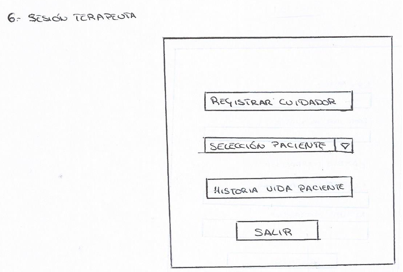 6.- SESIÓN TERAPEUTA
REGISTRAR CUIDADOR
SELECCIÓN PACIENTE
HISTORIA VIDA PACIENTE
SALIR